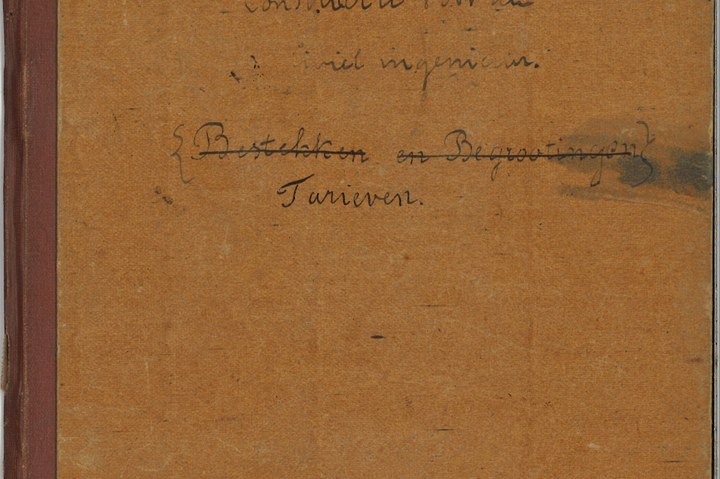 civiel ingenieur.
{Bestekken en Begrootingen}
Tarieven.